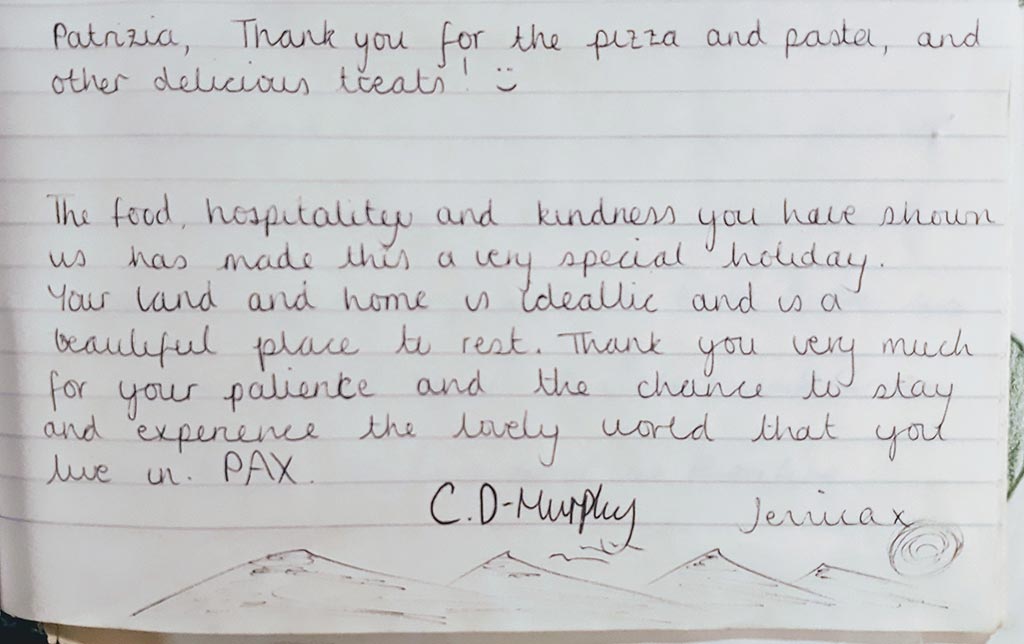 Patrizia, Thank you for the pizza and pasta, and
other delicious treats! :)
The food, hospitality and kindness you have shown
us has made this a very special holiday.
Your land and home is ideallic and is a
beautiful place to rest. Thank you very much
for your patience and the chance to stay
and experience the lovely world that you
live in. PAX.
C.D-Murphy Jessica x